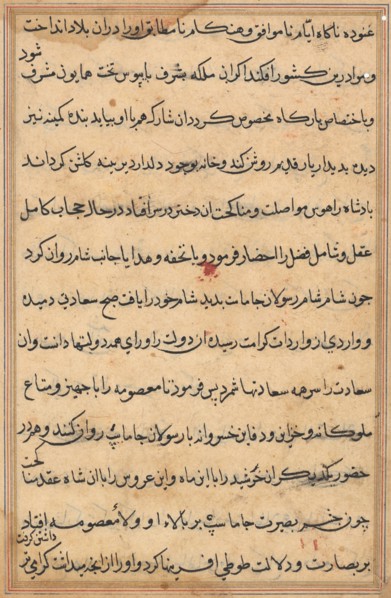 غنوده ناگاه ایّام ناموافق و هنگام نامطابق او را در ان بلاد انداخت
شود
و مرا درین کشور افکند اکر ان ملکه بشرف پابوس تخت همایون مشرف
و باختصاص بارکاه مخصوص کردد ان شارک همراه او بیاید بنده کمینه نیز
دیده بدیدار یار قدیم روشن کند و خانه بوجود دلدار دیرینه کلشن کرداند
پادشاه را هوس مواصلت و مناکحت ان دختر در سر افتاد در حال حجاب کامل
عقل و شامل فضل را احضار فرمود و با تحفه و هدایا جانب شام روان کرد
چون شام شام رسولان جاماسب بدید شام خود را یافت صبح سعادتی دمیده
و واردی از واردات کرامت رسیده ان دولت را ورای همه دولتها دانست و ان
سعادت را سرهمه سعادتها شمرد پس فرمود تا معصومه را با جهیز و متاع
ملوکانه و خزاین و دفاین خسروانه با رسولان جاماسپ روان کنند و هم در
حضور یکدیکر ان خورشید را با این ماه و این عروس را با ان شاه عقد مناکحت
چون خبر بصرت جاماسپ بر بالاء او و ولاء معصومه افتاد
داشتن کرفت
بر بصارت و دلالت طوطی افرینها کرد و او را از انچه میداشت کرامی تر